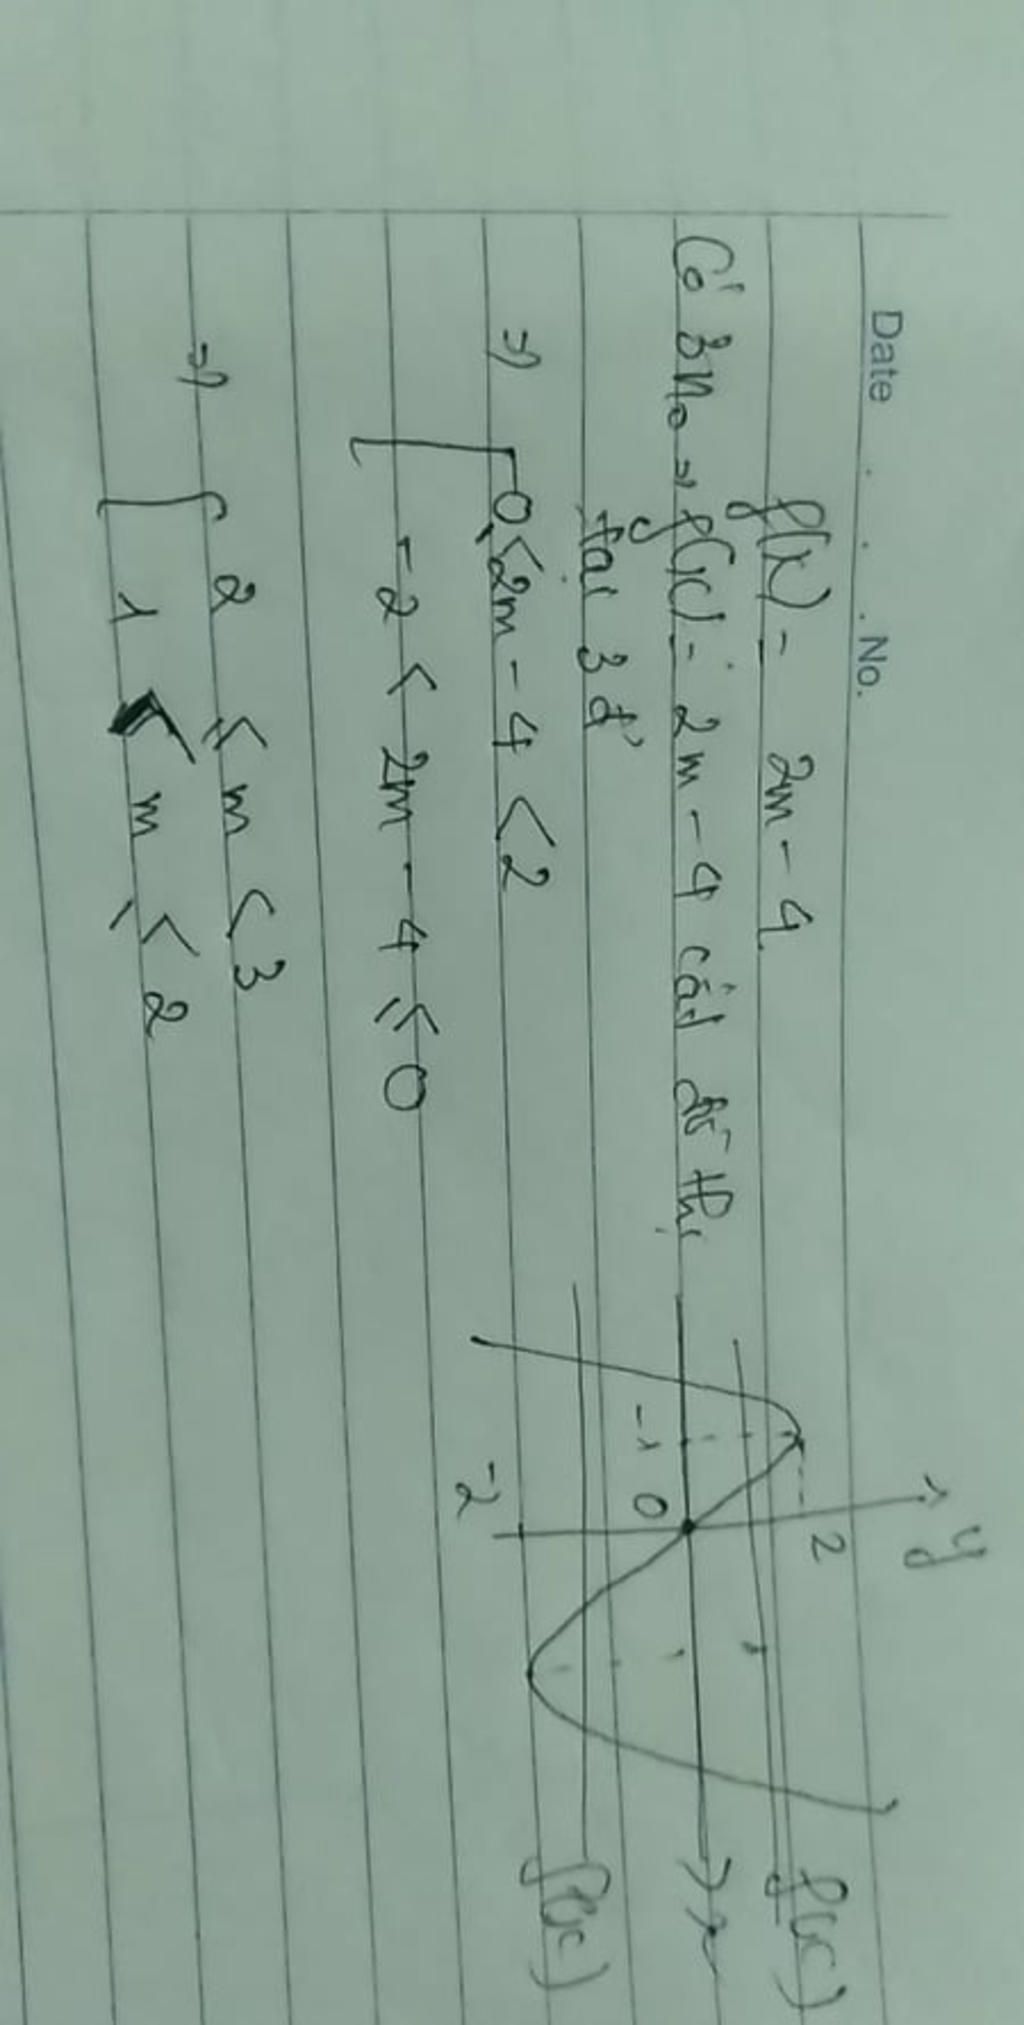 Date . . . No.
f(x) = 2m - 4
Có 3 no => f(x) = 2m - 4 cắt đồ thị
tại 3 đ'
=> [ 0 ≤ 2m - 4 < 2
-2 < 2m - 4 ≤ 0
=> [ 2 ≤ m < 3
1 < m ≤ 2
y
2
f(x)
-1 0
x
f(x)
-2